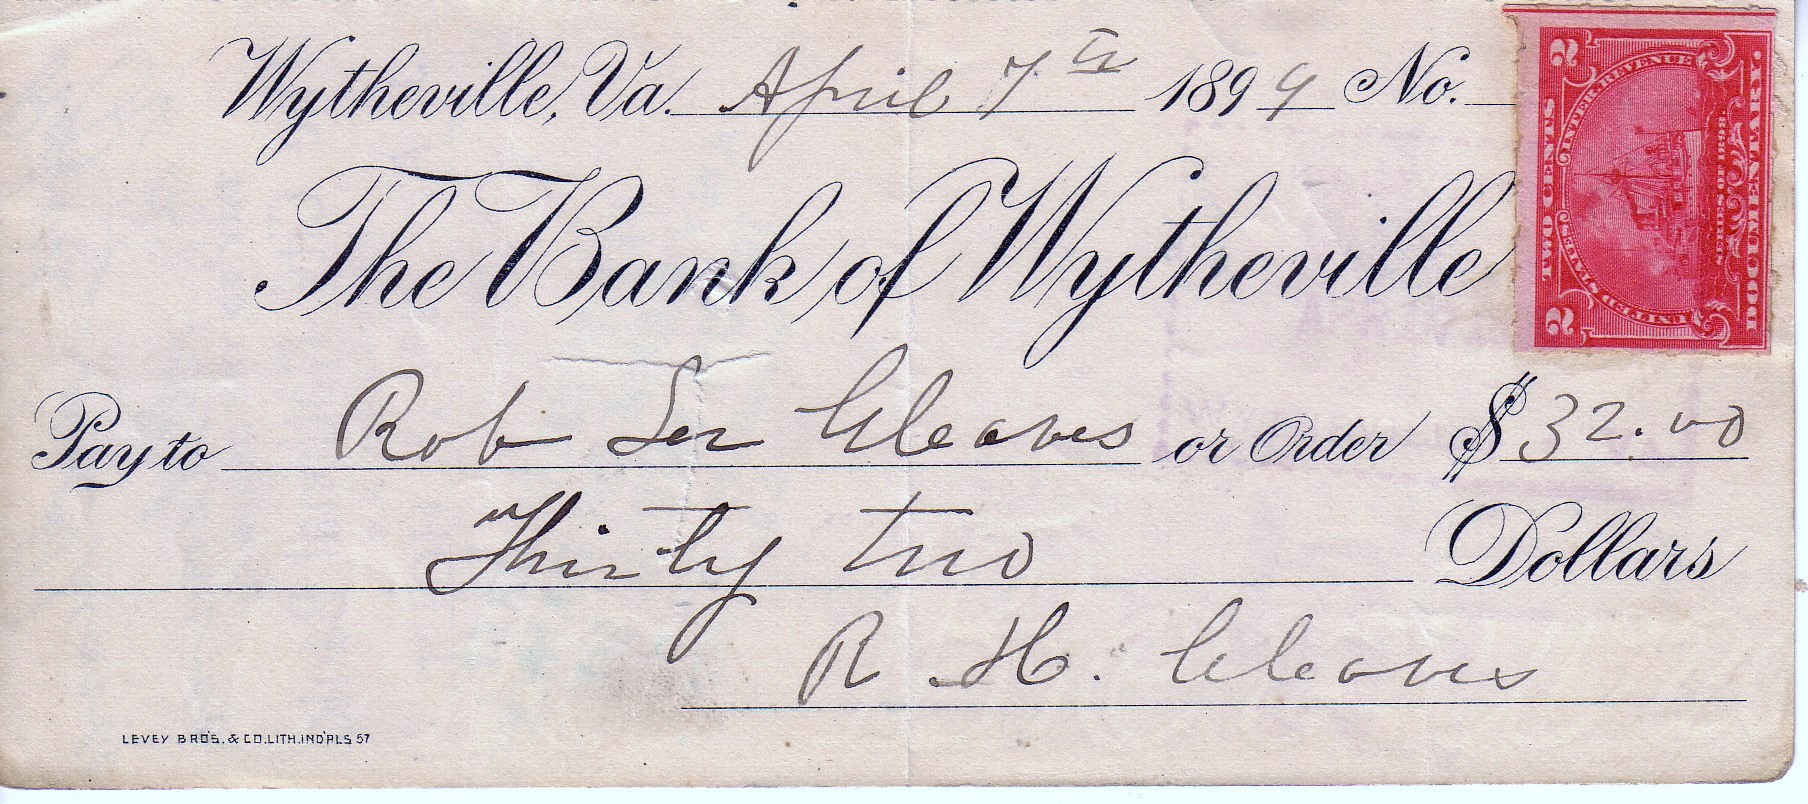 Wytheville, Va. April 7th 1899 No.
The Bank of Wytheville
Pay to Rob Lee Cleaves or Order $32.00
Thirty two Dollars
R. H. Cleaves
LEVEY BRO'S. & CO. LITH. IND'PLS 57
2 TWO CENTS 2
INTER. REVENUE
UNITED STATES
SERIES OF 1898
DOCUMENTARY